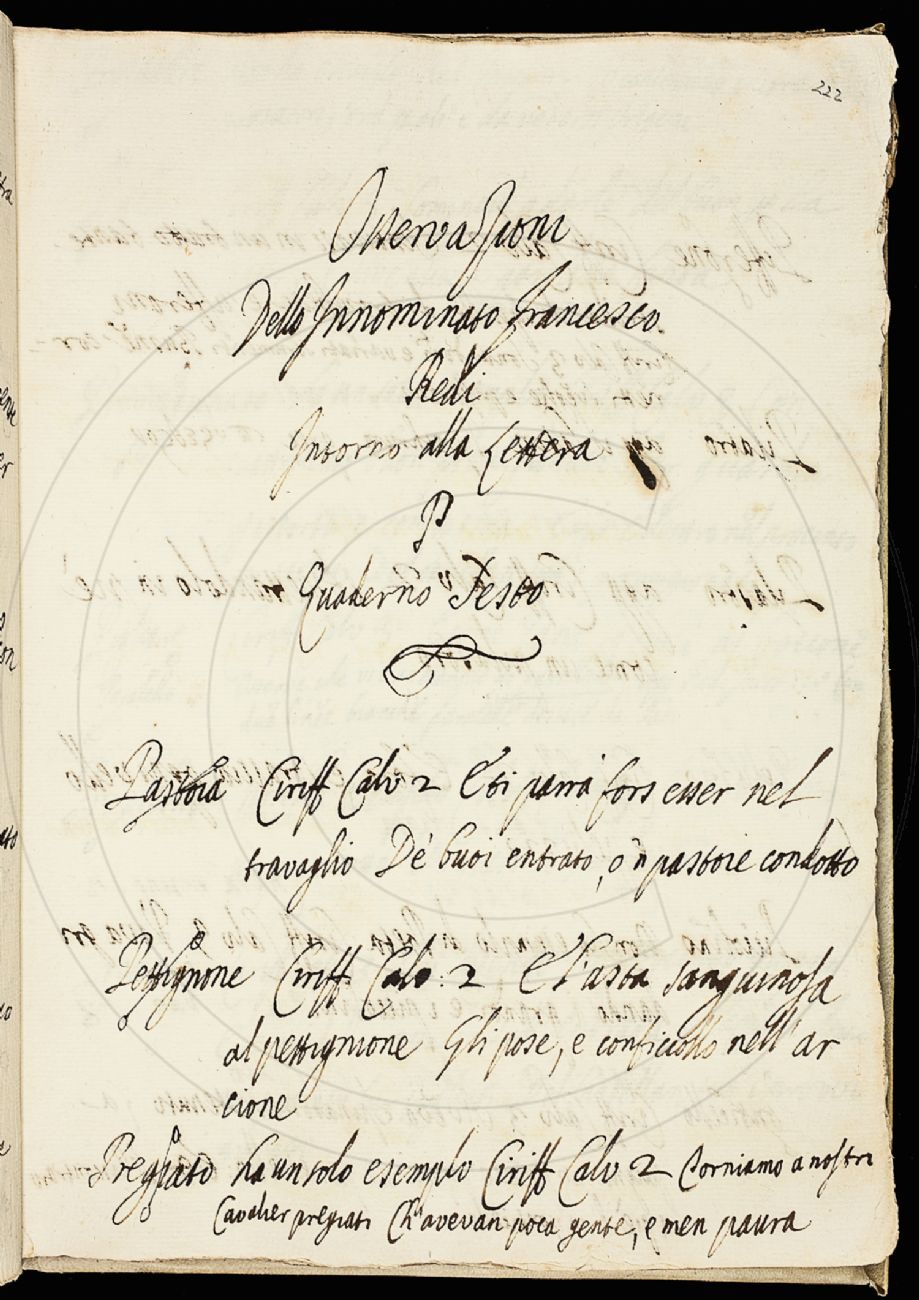 222
Osservazioni
Dello Innominato Francesco
Redi
Intorno alla Lettera
P
Quaderno Sesto
Pastoia Ciriff Calv 2 E ti parrà fors esser nel
travaglio De' buoi entrato, o 'n pastoie condotto
Pettignone Ciriff. Calv: 2 E l'asta sanguinosa
al pettignione Gli pose, e conficcollo nell' ar
cione
Pregiato ha un solo esemplo Ciriff Calv 2 Torniamo a nostri
Cavalier pregiati Ch'avevan poca gente, e men paura